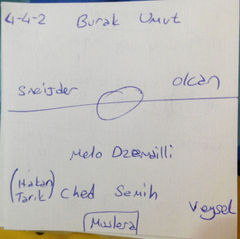 4-4-2 Burak Umut
Sneijder olcan
Melo Dzemailli
(Hakan
Tarik) Ched Semih
Veysel
Muslera